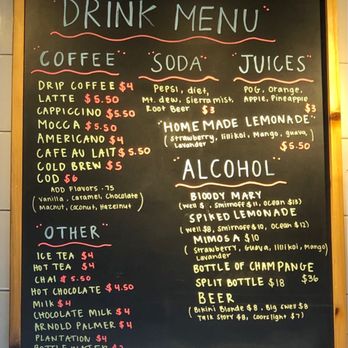 DRINK MENU
COFFEE
DRIP COFFEE $4
LATTE $5.50
CAPPICCINO $5.50
MOCCA $5.50
AMERICANO $4
CAFE AU LAIT $5.50
COLD BREW $5
COD $6
ADD FLAVORS .75
(Vanilla, Caramel, Chocolate)
Macnut, Coconut, Hazelnut)
OTHER
ICE TEA $4
HOT TEA $4
CHAI $5.50
HOT CHOCOLATE $4.50
MILK $4
CHOCOLATE MILK $4
ARNOLD PALMER $4
PLANTATION $4
BOTTLE WATER
SODA
PEPSI, diet,
Mt. dew, Sierra mist,
Root Beer $3
JUICES
POG, Orange,
Apple, Pineapple
$3
"HOME MADE LEMONADE"
(Strawberry, lilikoi, Mango, guava,
Lavander
$6.50
ALCOHOL
BLOODY MARY
(Well $ , Smirnoff 11, Ocean $13)
SPIKED LEMONADE
(Well $8, Smirnoff $10, Ocean $12)
MIMOSA $10
(Strawberry, Guava, lilikoi, Mango)
Lavander
BOTTLE OF CHAMPANGE
$36
SPLIT BOTTLE $18
BEER
(Bikini Blonde $8, Big Swell $8
Talk Story $8, Coors light $7)